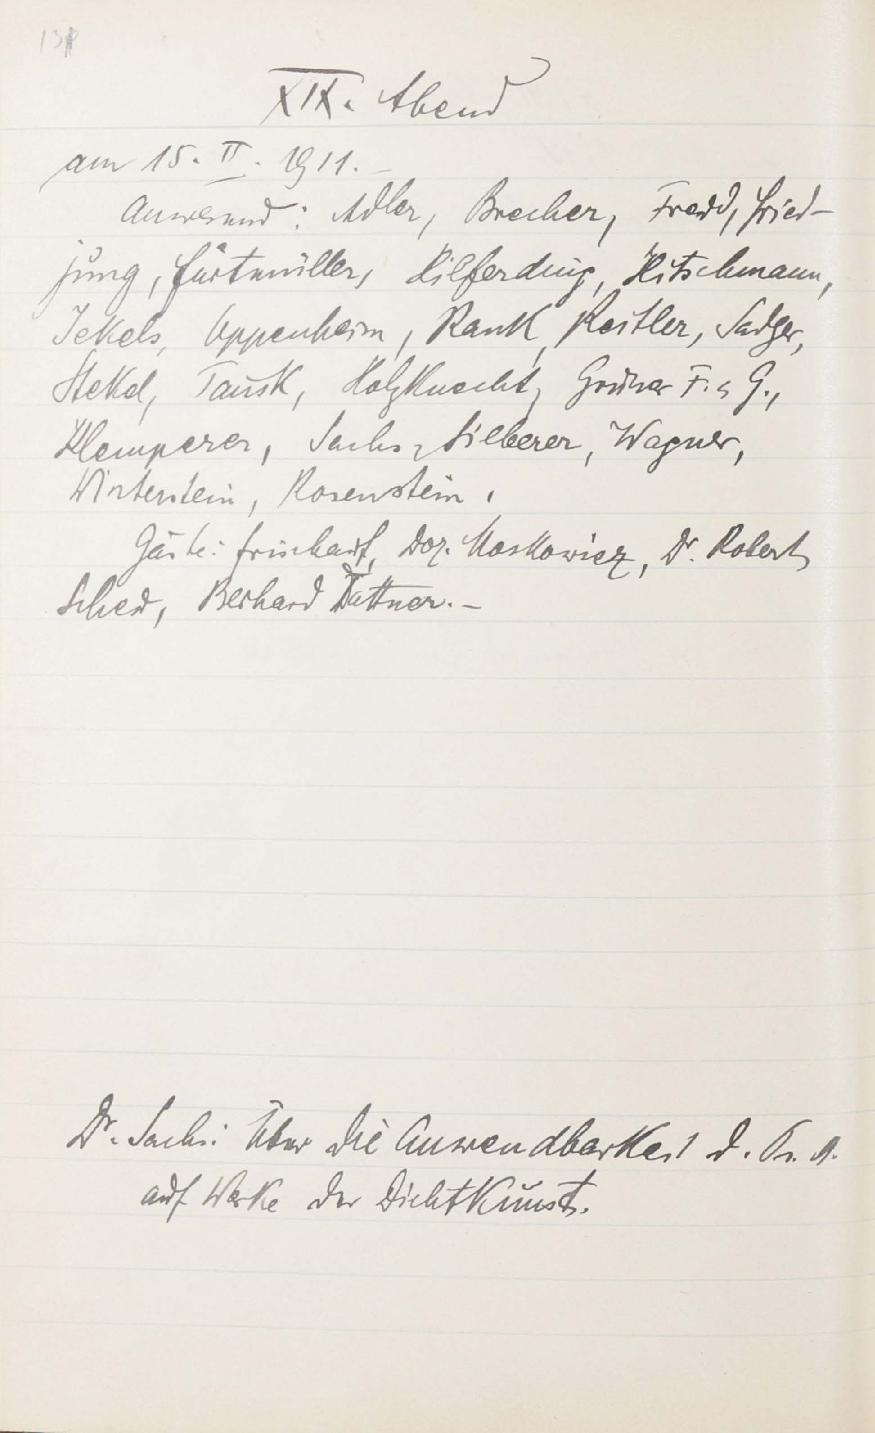 XIX. Abend
am 15. II. 1911. –
Anwesend: Adler, Brecher, Freud, Fried-
jung, Furtmüller, Hilferding, Hitschmann,
Jekels, Oppenheim, Rank, Reitler, Sadger,
Stekel, Tausk, Holzknecht, Grüner F. u G.,
Klemperer, Sachs, Silberer, Wagner,
Winterstein, Rosenstein.
Gäste: Frischauf, Doz. Moskowicz, Dr. Robert
Scheu, Bernhard Dattner. –
Dr. Sachs: Über die Anwendbarkeit d. Ps. A.
auf Werke der Dichtkunst.